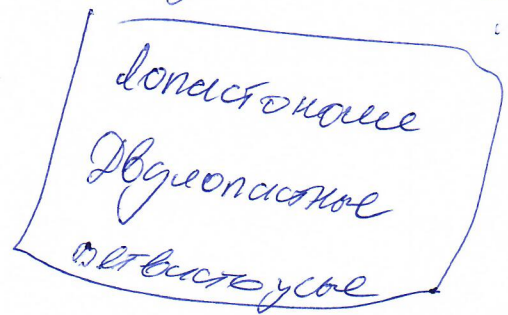 Лопастоногие
Двулопастные
ветвистоусые